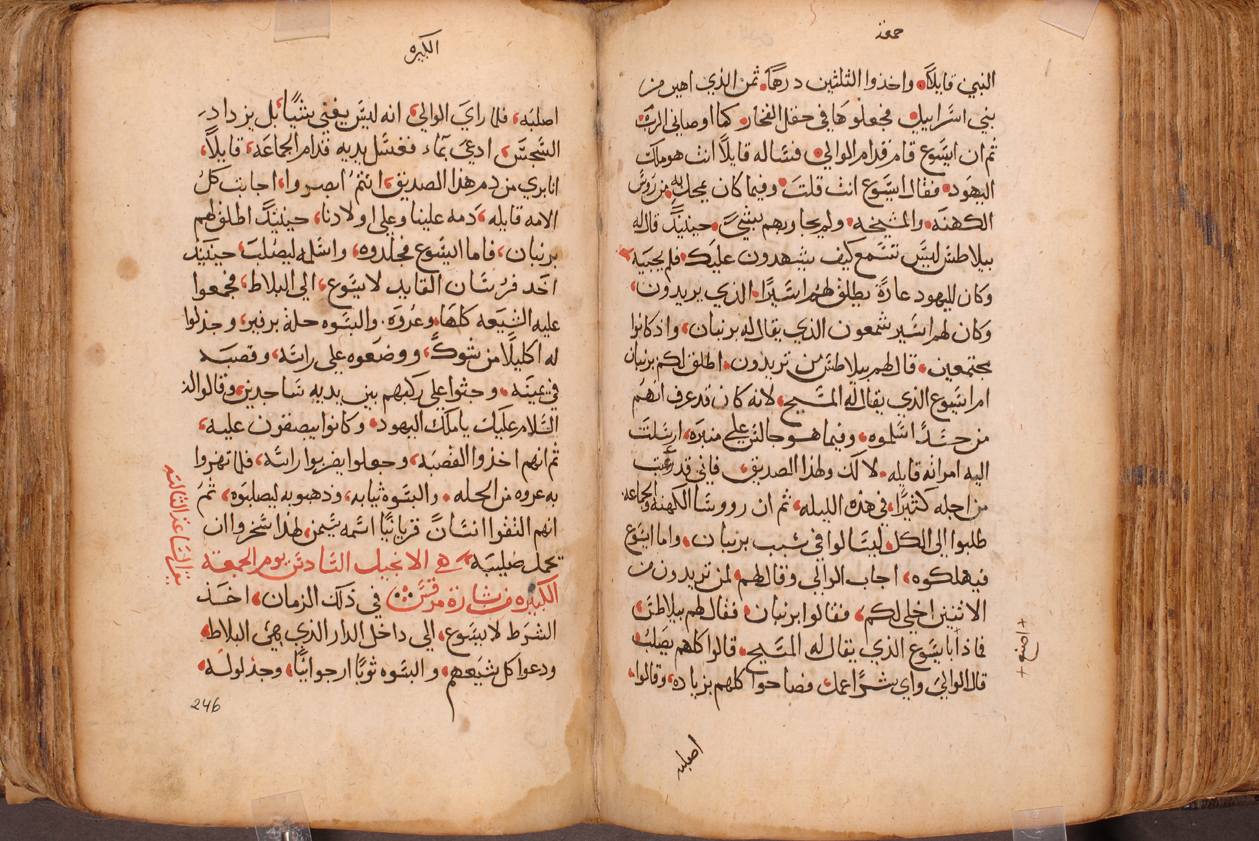 جمعة
النبي قايلاً واخذوا الثلثين درهماً ثمن الذي اهين من
بني اسراييل فجعلوها في حقل الفخار كما اوصاني الرب
ثم ان ايسوع قام قدام الوالي فساله قايلاً انت هو ملك
اليهود فقال ايسوع انت قلت وفيما كان يمحل به من روسا
الكهنة والمشيخه ولم يجاوبهم بشيً حينيذٍ قال له
بيلاطس ليس تسمع كيف يشهدون عليك فلم يجيبه
وكان لليهود عادة يطلق لهم اسيرًا الذي يريدون
وكان لهم اسير شمعون الذي يقال له برنبان واذ كانوا
مجتمعين قال لهم بيلاطس من تريدون اطلق لكم برنبان
ام ايسوع الذي يقال له المسيح لانه كان قد عرف انهم
من حسدًا اسلموه وفيما هو جالس على منبره ارسلت
اليه امراته قايله لا لك ولهذا الصديق فاني قد تعبت
من اجله كثيرًا في هذه الليله ثم ان رووسا الكهنة والجماعه
طلبوا الى الكل ليسالوا في سبب برنبان واما ايسوع
فيهلكوه اجاب الوالي وقال لهم لمن تريدون من
الاثنين اخلي لكم فقالوا برنبان فقال لهم بيلاطس
فاذا ايسوع الذي يقال له المسيح قالوا كلهم يصلب
قال الوالي واي شرًا عمل فصاحوا كلهم بزياده وقالوا
اصنع
اصلبه
الكبيره
اصلبه فلما راي الوالي انه ليس يغني شيًا بل يزداد
السجس ادعي بماء فغسل يديه قدام الجماعة قايلاً
انا بري من دم هذا الصديق انتم ابصروا اجابت كل
الامه قايله دمه علينا وعلى اولادنا حينيذٍ اطلق لهم
برنبان فاما ايسوع فجلدوه واسلمه ليصلب حينيذ
اخد فرسان القايد لايسوع الى البلاط فجمعوا
عليه الشيعه كلها وعروه والبسوه حلة برفير وجدلوا
له اكليلًا من شوك ووضعوه على راسه وقصبه
في يمينه وجثوا على ركبهم بين يديه ساجدين وقالوا له
السلام عليك يا ملك اليهود وكانوا يبصقون عليه
ثم انهم اخذوا القصبه وجعلوا يضربوا راسه فلما تهزوا
به عروه من الحله والبسوه ثيابه وذهبو به ليصلبوه ثم
انهم التقوا انسان قريانيًا اسمه سيمن لهذا سخروا ان
تحمل صليبه الانجيل السادس يوم الجمعة
الكبيره من بشارة مرقس في ذلك الزمان اخذ
الشرط لايسوع الي داخل الدار الذي هي البلاط
ودعوا كل شيعهم والبسوه ثوبًا ارجوانيًا وجدلوا له
الساعة الثالثه
246